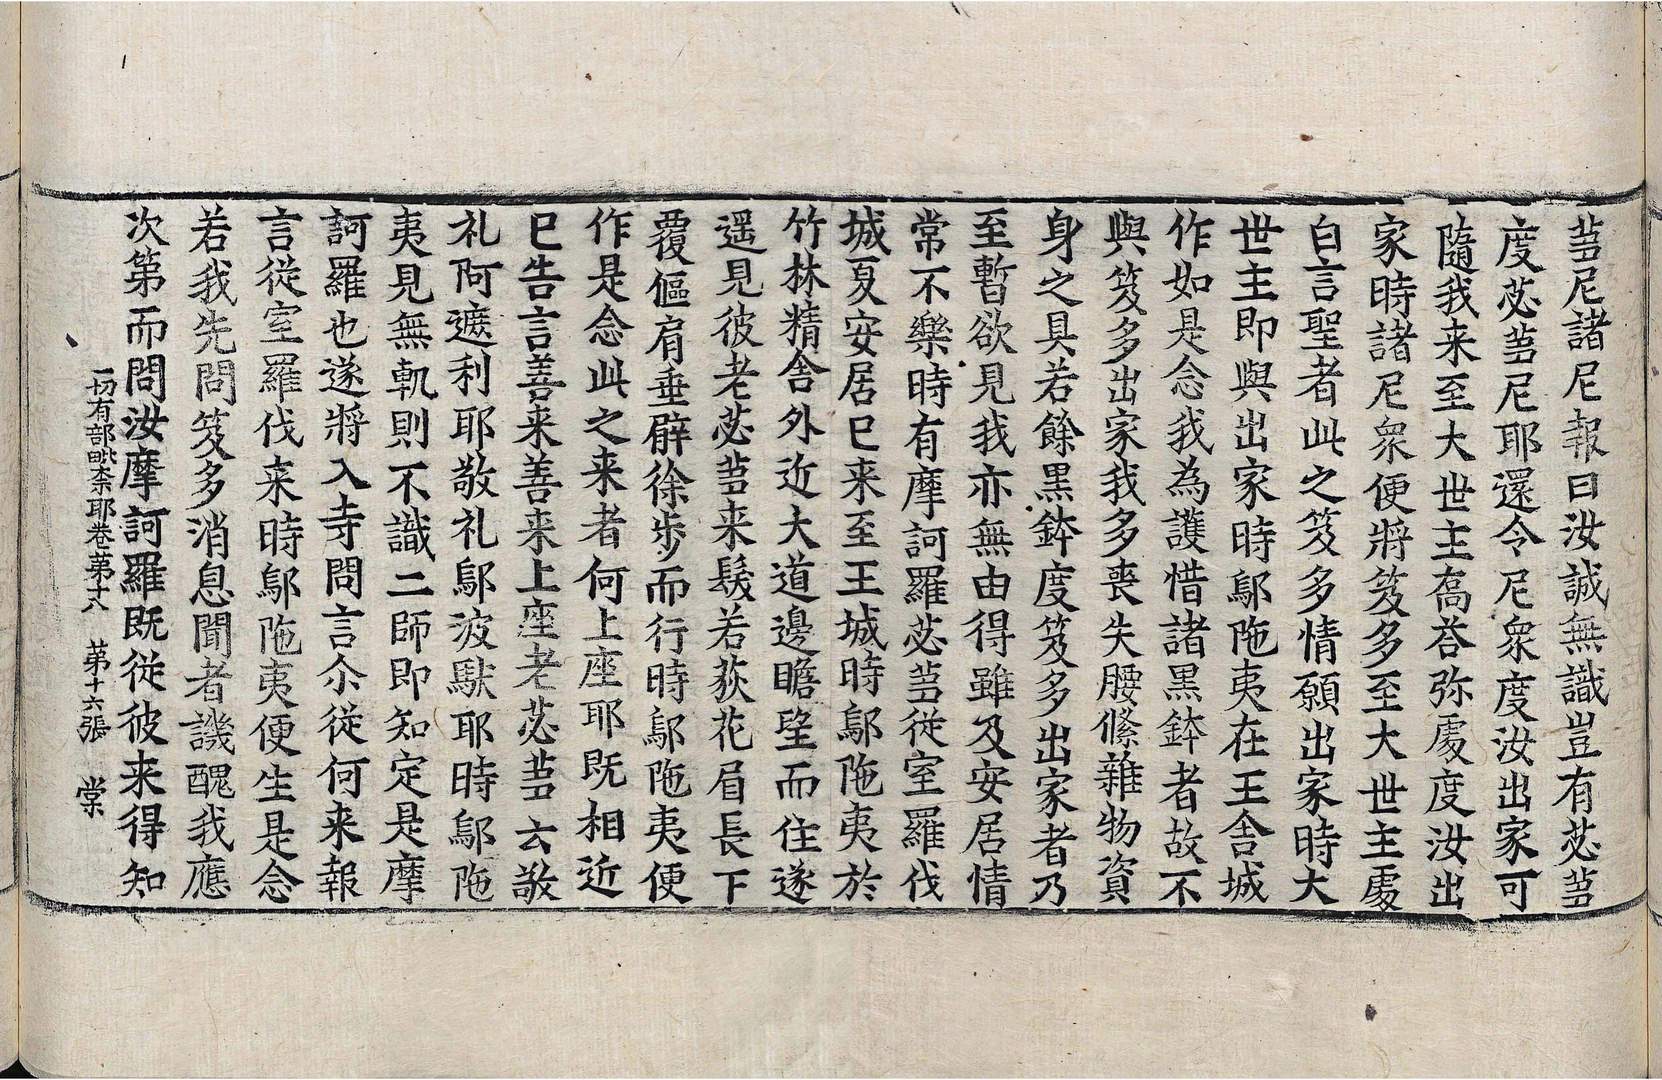 苾尼諸尼報曰汝誠無識豈有苾芻
度苾芻尼耶還令尼衆度汝出家可
隨我来至大世主喬荅弥處度汝出
家時諸尼衆便將笈多至大世主處
白言聖者此之笈多情願出家時大
世主即與出家時鄔陁夷在王舍城
作如是念我為護惜諸黒鉢者故不
與笈多出家我多喪失腰絛雜物資
身之具若餘黒鉢度笈多出家者乃
至暫欲見我亦無由得雖及安居情
常不樂時有摩訶羅苾芻從室羅伐
城夏安居已来至王城時鄔陁夷於
竹林精舍外近大道邊瞻望而住遂
遥見彼老苾芻来鬚若荻花眉長下
覆傴肩垂臂徐步而行時鄔陁夷便
作是念此之来者何上座耶既相近
已告言善来善来上座老苾芻云敬
礼阿遮利耶敬礼鄔波馱耶時鄔陁
夷見無軌則不識二師即知定是摩
訶羅也遂將入寺問言尒從何来報
言從室羅伐来時鄔陁夷便生是念
若我先問笈多消息聞者譏醜我應
次第而問汝摩訶羅既從彼来得知
一切有部毗柰耶卷第十八　第十六張　棠